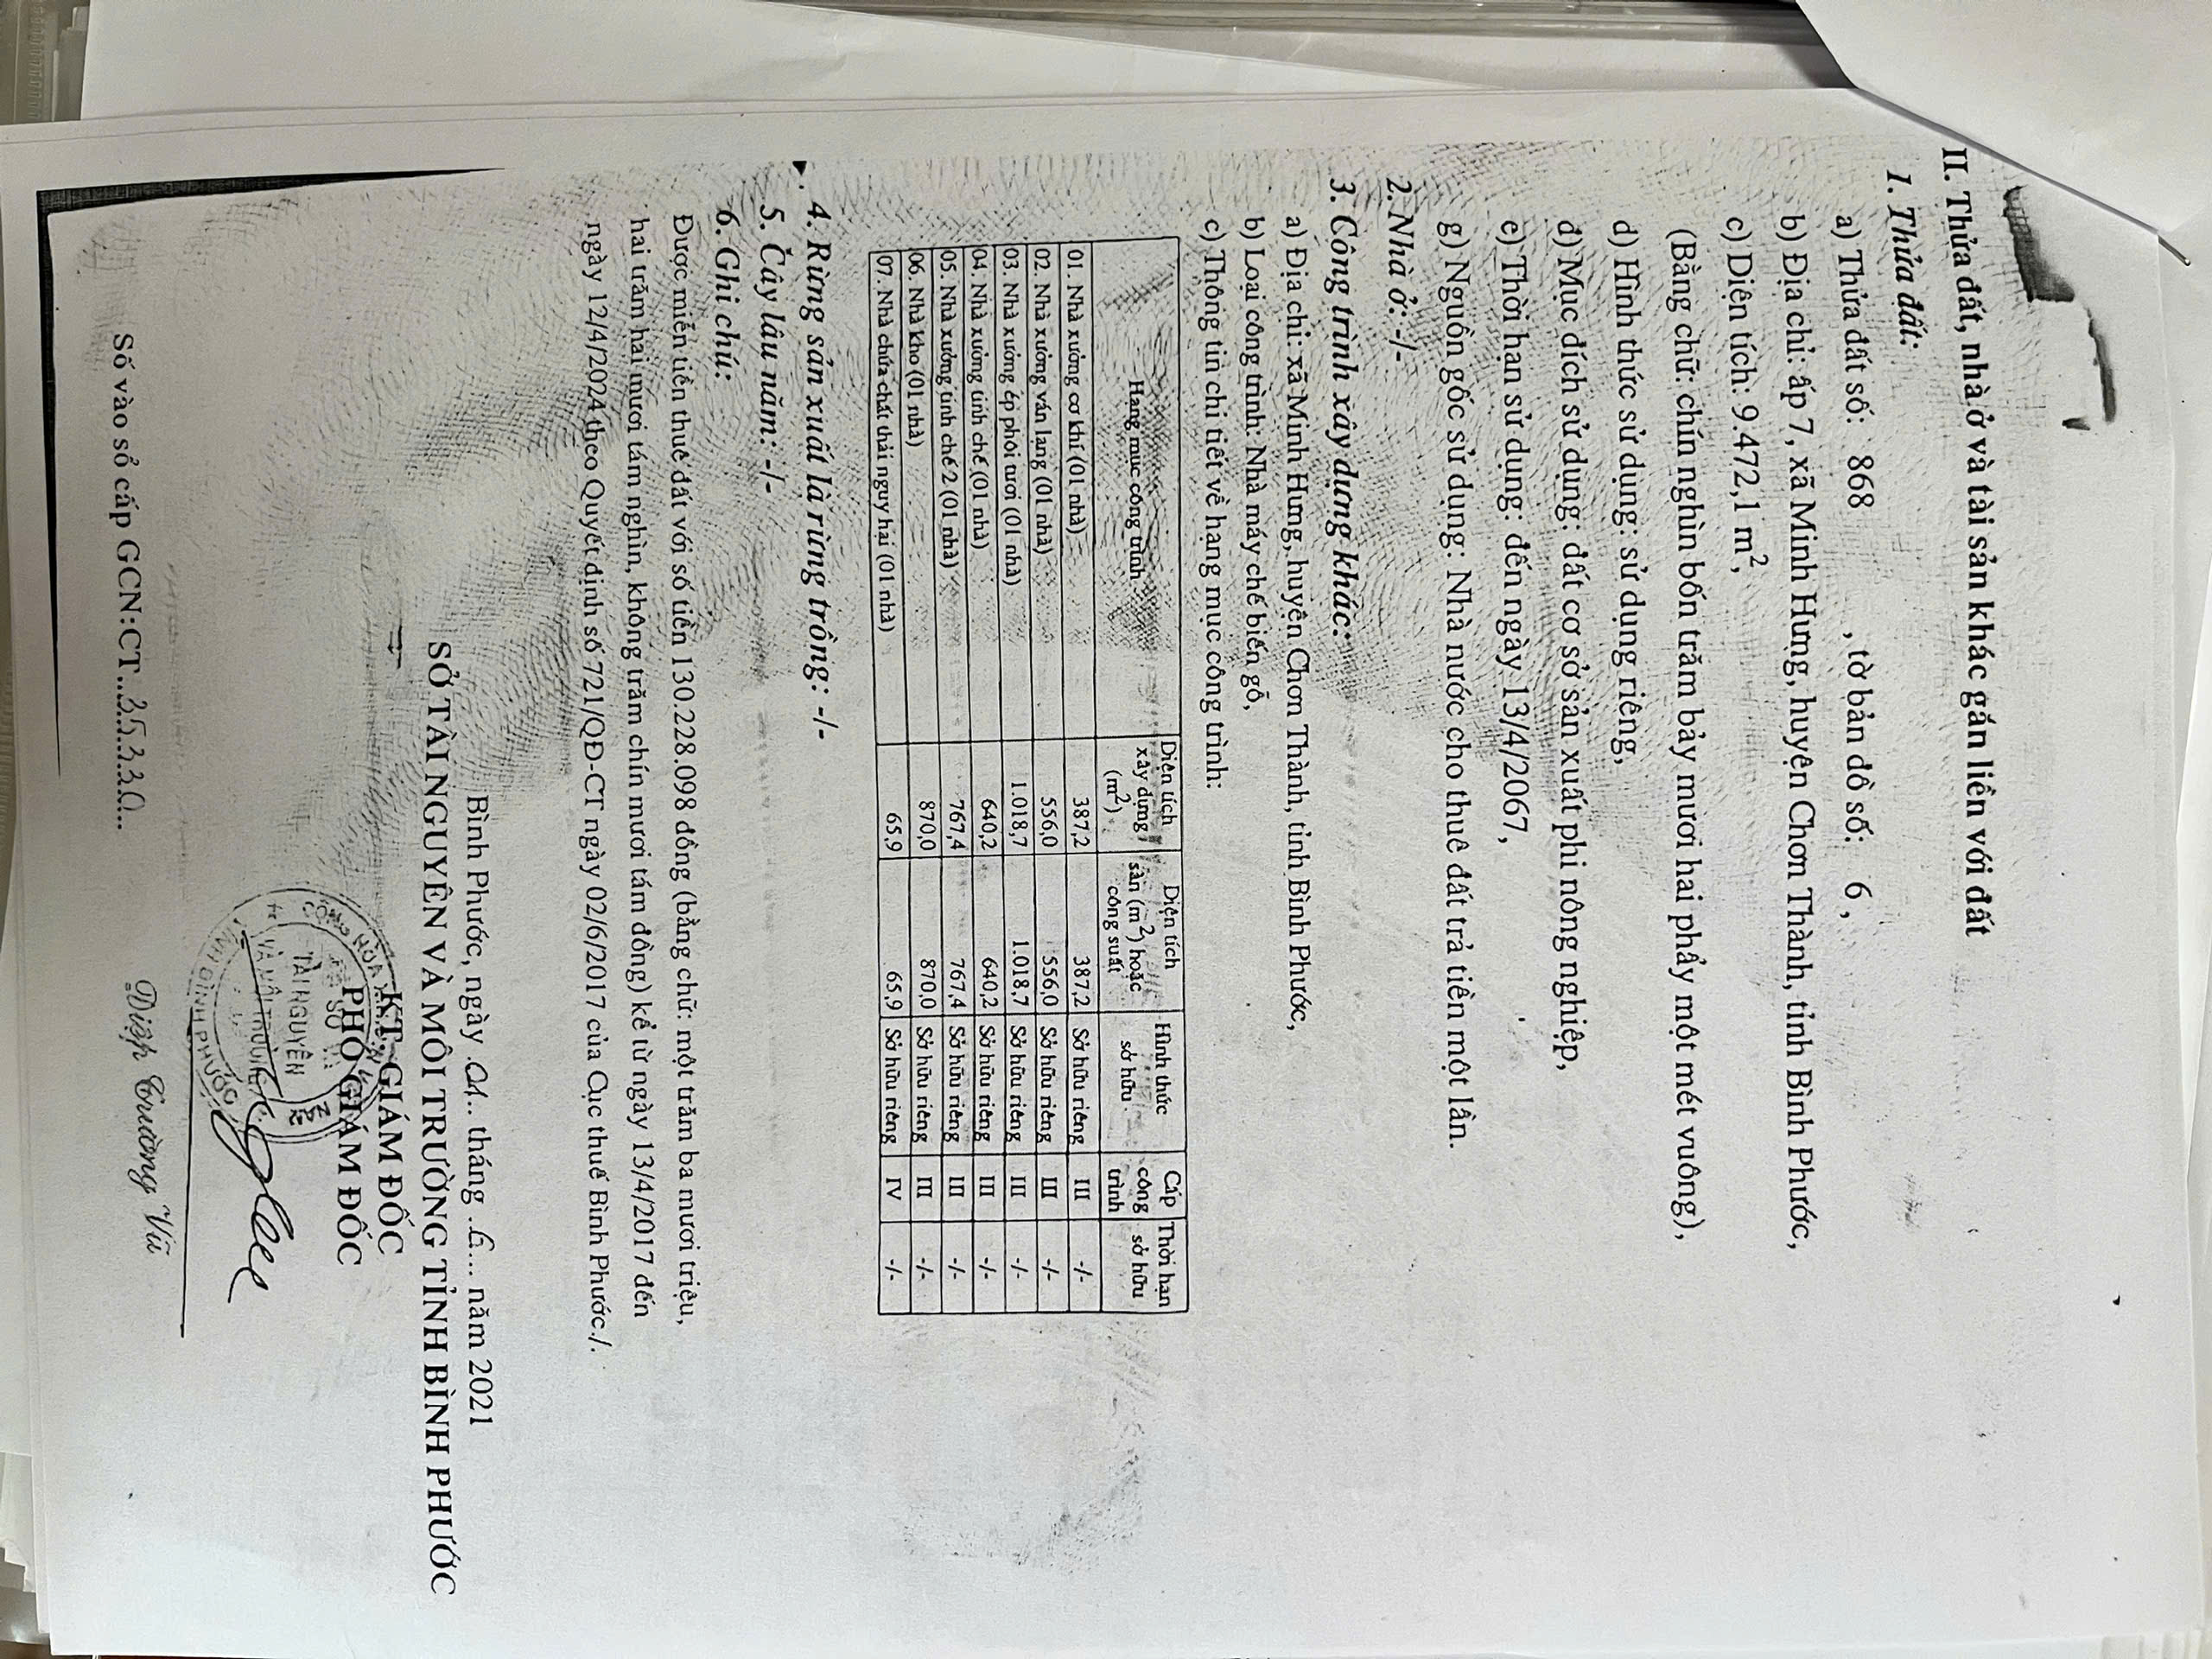 II. Thửa đất, nhà ở và tài sản khác gắn liền với đất
1. Thửa đất:
a) Thửa đất số: 868 , tờ bản đồ số: 6 ,
b) Địa chỉ: ấp 7, xã Minh Hưng, huyện Chơn Thành, tỉnh Bình Phước,
c) Diện tích: 9.472,1 m²,
(Bằng chữ: chín nghìn bốn trăm bảy mươi hai phẩy một mét vuông),
d) Hình thức sử dụng: sử dụng riêng,
đ) Mục đích sử dụng: đất cơ sở sản xuất phi nông nghiệp,
e) Thời hạn sử dụng: đến ngày 13/4/2067,
g) Nguồn gốc sử dụng: Nhà nước cho thuê đất trả tiền một lần.
2. Nhà ở: -/-
3. Công trình xây dựng khác:
a) Địa chỉ: xã Minh Hưng, huyện Chơn Thành, tỉnh Bình Phước,
b) Loại công trình: Nhà máy chế biến gỗ,
c) Thông tin chi tiết về hạng mục công trình:
Hạng mục công trình Diện tích xây dựng (m²) Diện tích sàn (m²) hoặc công suất Hình thức sở hữu Cấp công trình Thời hạn sở hữu
01. Nhà xưởng cơ khí (01 nhà) 387,2 387,2 Sở hữu riêng III -/-
02. Nhà xưởng ván lạng (01 nhà) 556,0 556,0 Sở hữu riêng III -/-
03. Nhà xưởng ép phôi tươi (01 nhà) 1.018,7 1.018,7 Sở hữu riêng III -/-
04. Nhà xưởng tinh chế (01 nhà) 640,2 640,2 Sở hữu riêng III -/-
05. Nhà xưởng tinh chế 2 (01 nhà) 767,4 767,4 Sở hữu riêng III -/-
06. Nhà kho (01 nhà) 870,0 870,0 Sở hữu riêng III -/-
07. Nhà chứa chất thải nguy hại (01 nhà) 65,9 65,9 Sở hữu riêng IV -/-
4. Rừng sản xuất là rừng trồng: -/-
5. Cây lâu năm: -/-
6. Ghi chú:
Được miễn tiền thuê đất với số tiền 130.228.098 đồng (bằng chữ: một trăm ba mươi triệu,
hai trăm hai mươi tám nghìn, không trăm chín mươi tám đồng) kể từ ngày 13/4/2017 đến
ngày 12/4/2024 theo Quyết định số 721/QĐ-CT ngày 02/6/2017 của Cục thuế Bình Phước./.
Bình Phước, ngày 01 tháng 6 năm 2021
SỞ TÀI NGUYÊN VÀ MÔI TRƯỜNG TỈNH BÌNH PHƯỚC
KT. GIÁM ĐỐC
PHÓ GIÁM ĐỐC
CỘNG HÒA
SỞ
TÀI NGUYÊN
VÀ MÔI TRƯỜNG
TỈNH BÌNH PHƯỚC
Diệp Trường Vũ
Số vào sổ cấp GCN:CT...35330...